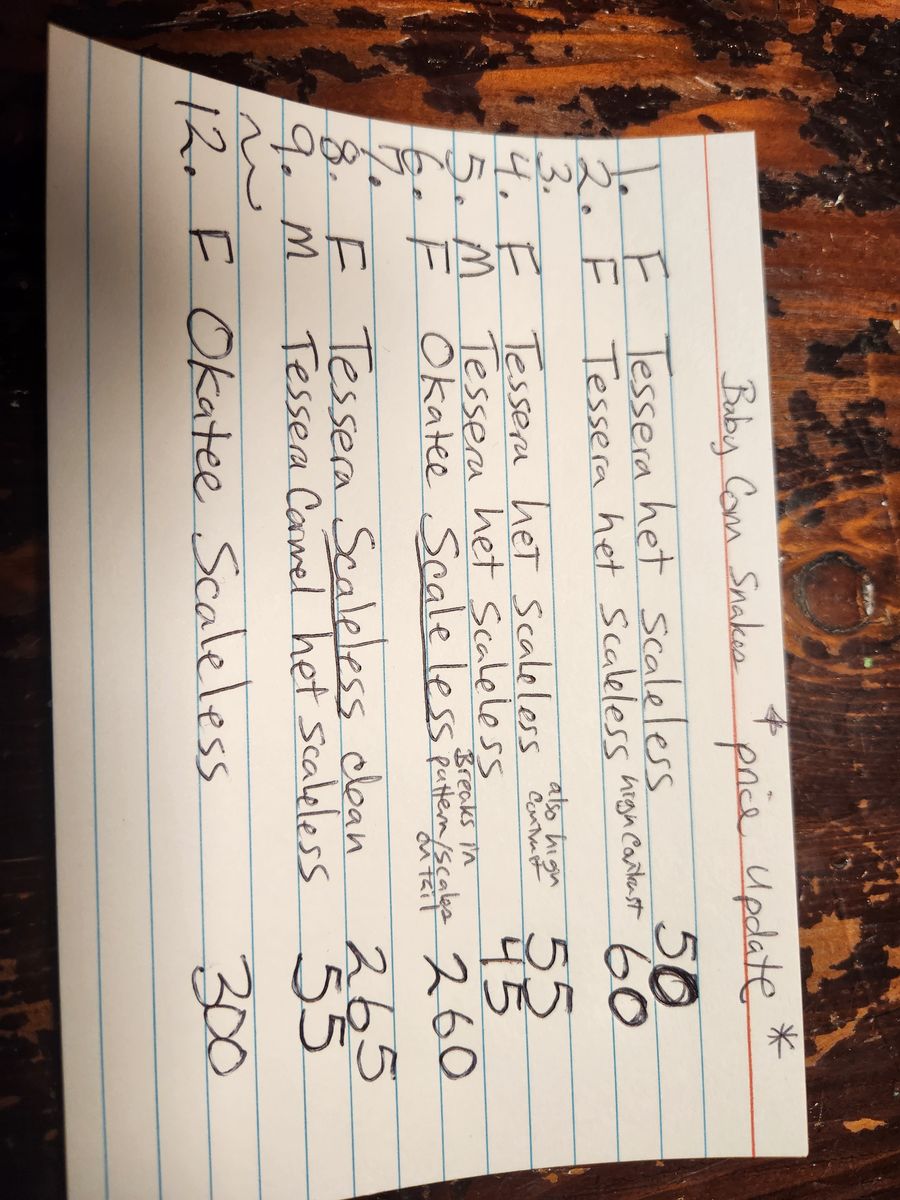 Baby Corn Snakes * price update *
1. F Tessera het scaleless 50
2. F Tessera het scaleless high contrast 60
3.
4. F Tessera het scaleless also high contrast 55
5. M Tessera het scaleless 45
6. F Okatee Scaleless Breaks in pattern/scales on tail 260
7.
8. F Tessera Scaleless clean 265
9. M Tessera Carmel het scaleless 55
12. F Okatee Scaleless 300